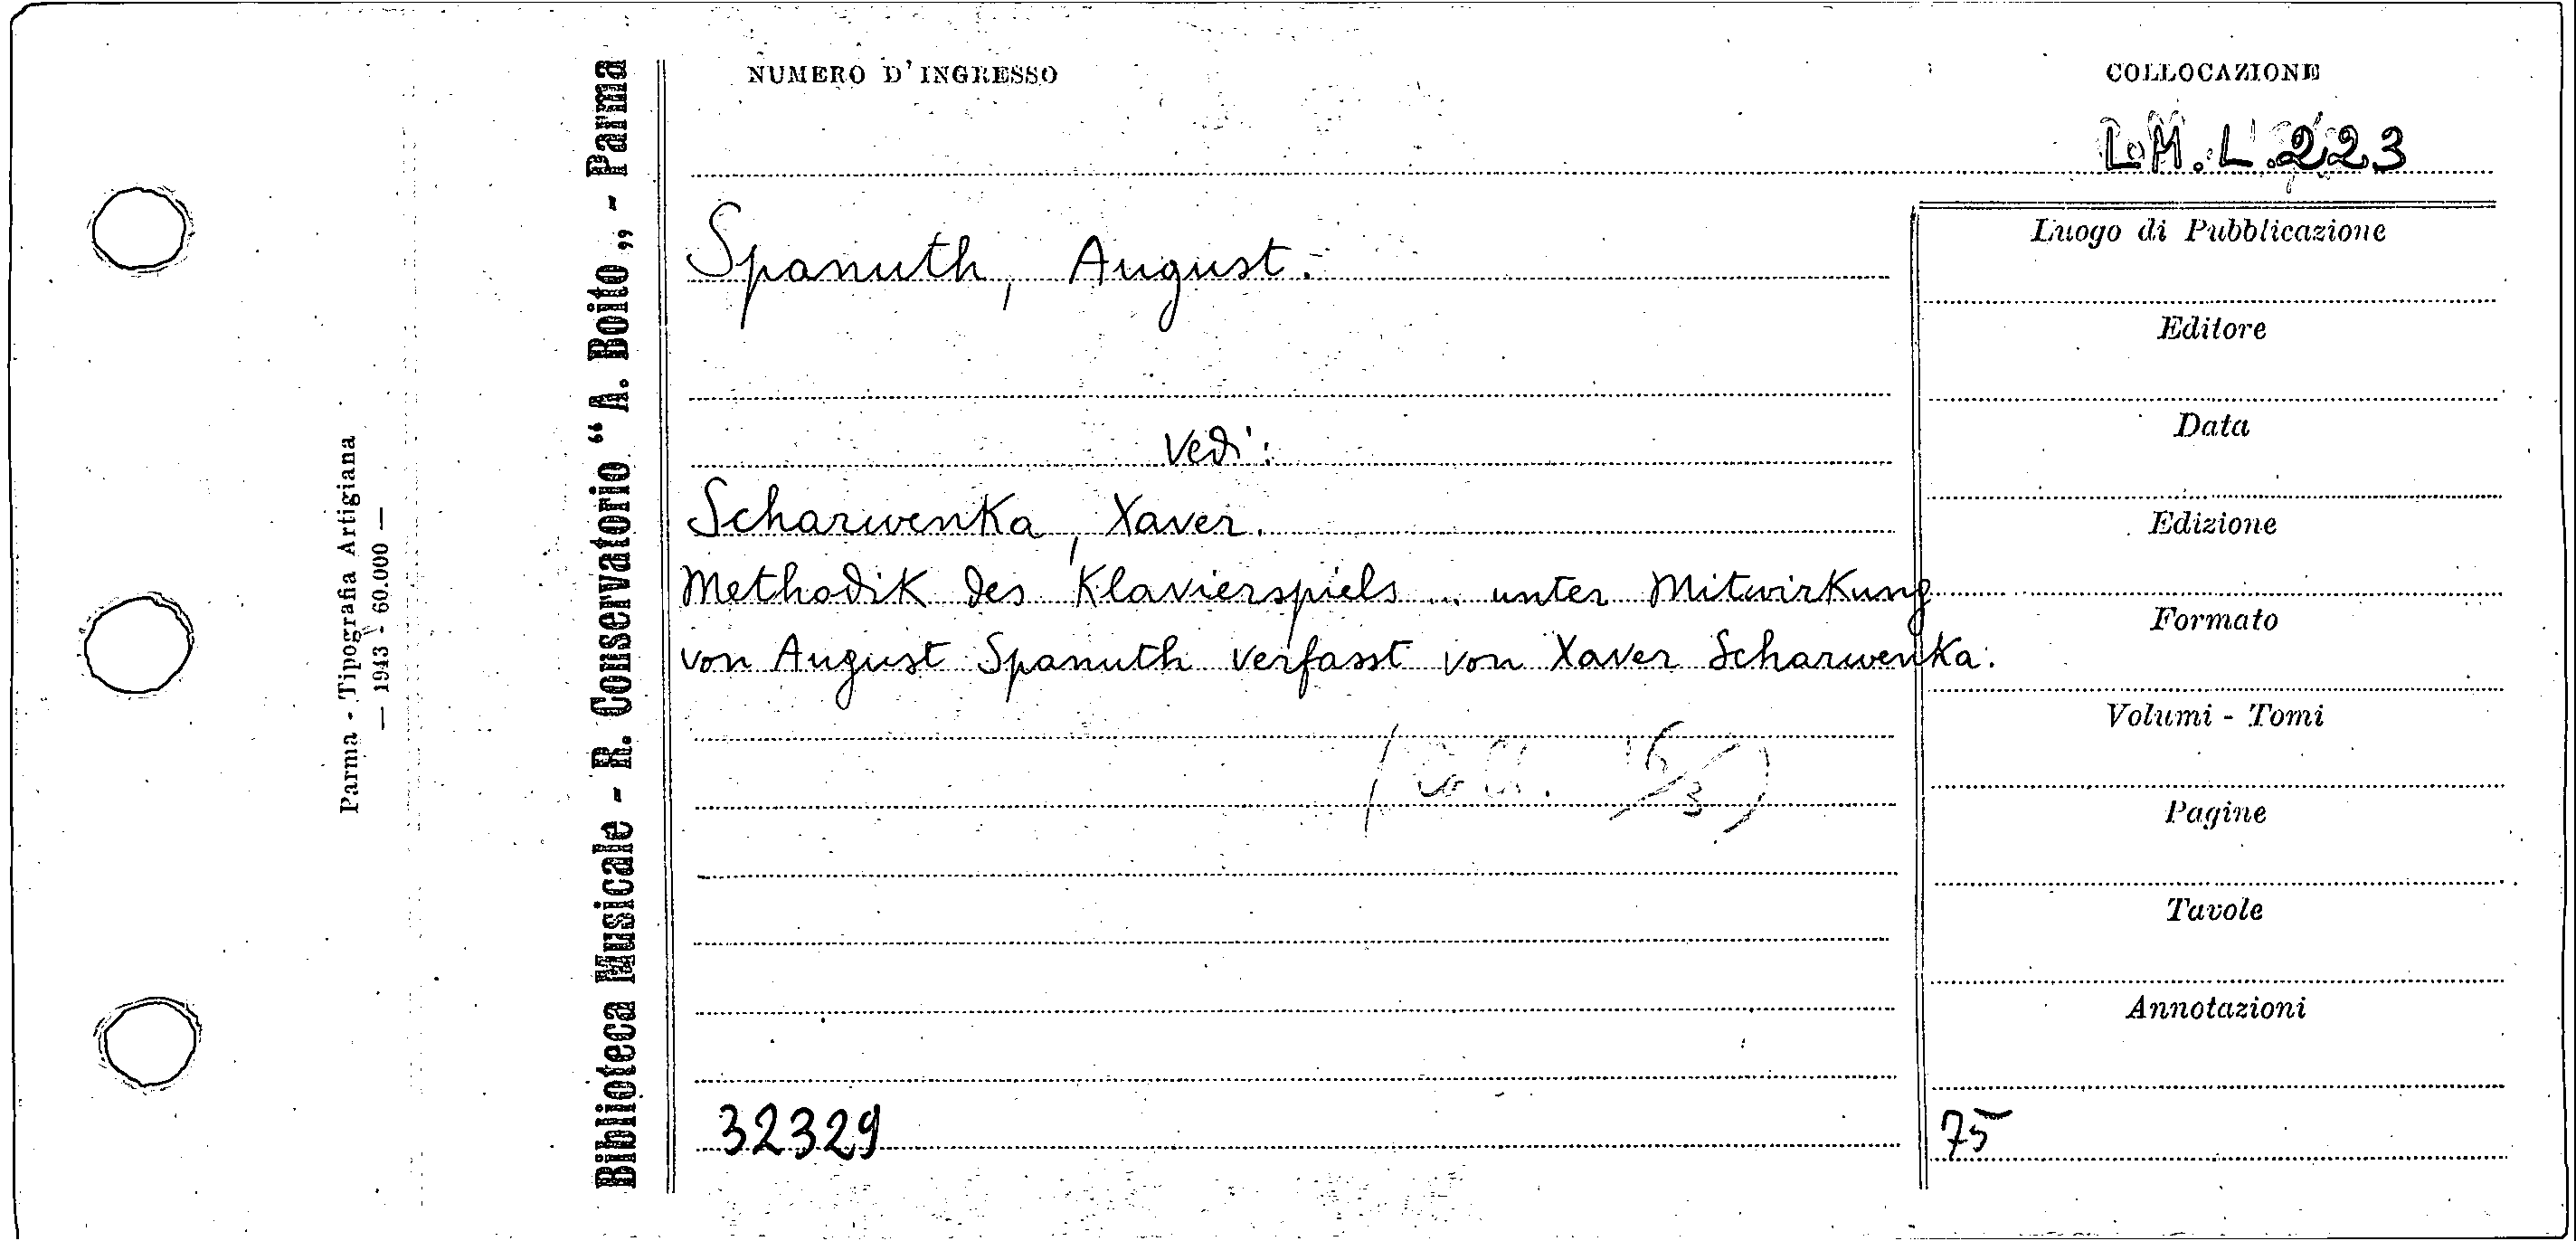 NUMERO D'INGRESSO
COLLOCAZIONE
L.M.L.223
Spanuth, August.
Vedi:
Scharwenka, Xaver.
Methodik des Klavierspiels ... unter Mitwirkung
von August Spanuth verfasst von Xaver Scharwenka.
32329
Luogo di Pubblicazione
Editore
Data
Edizione
Formato
Volumi - Tomi
Pagine
Tavole
Annotazioni
75
Biblioteca Musicale - R. Conservatorio “A. Boito„ - Parma
Parma - Tipografia Artigiana
— 1943 - 60.000 —